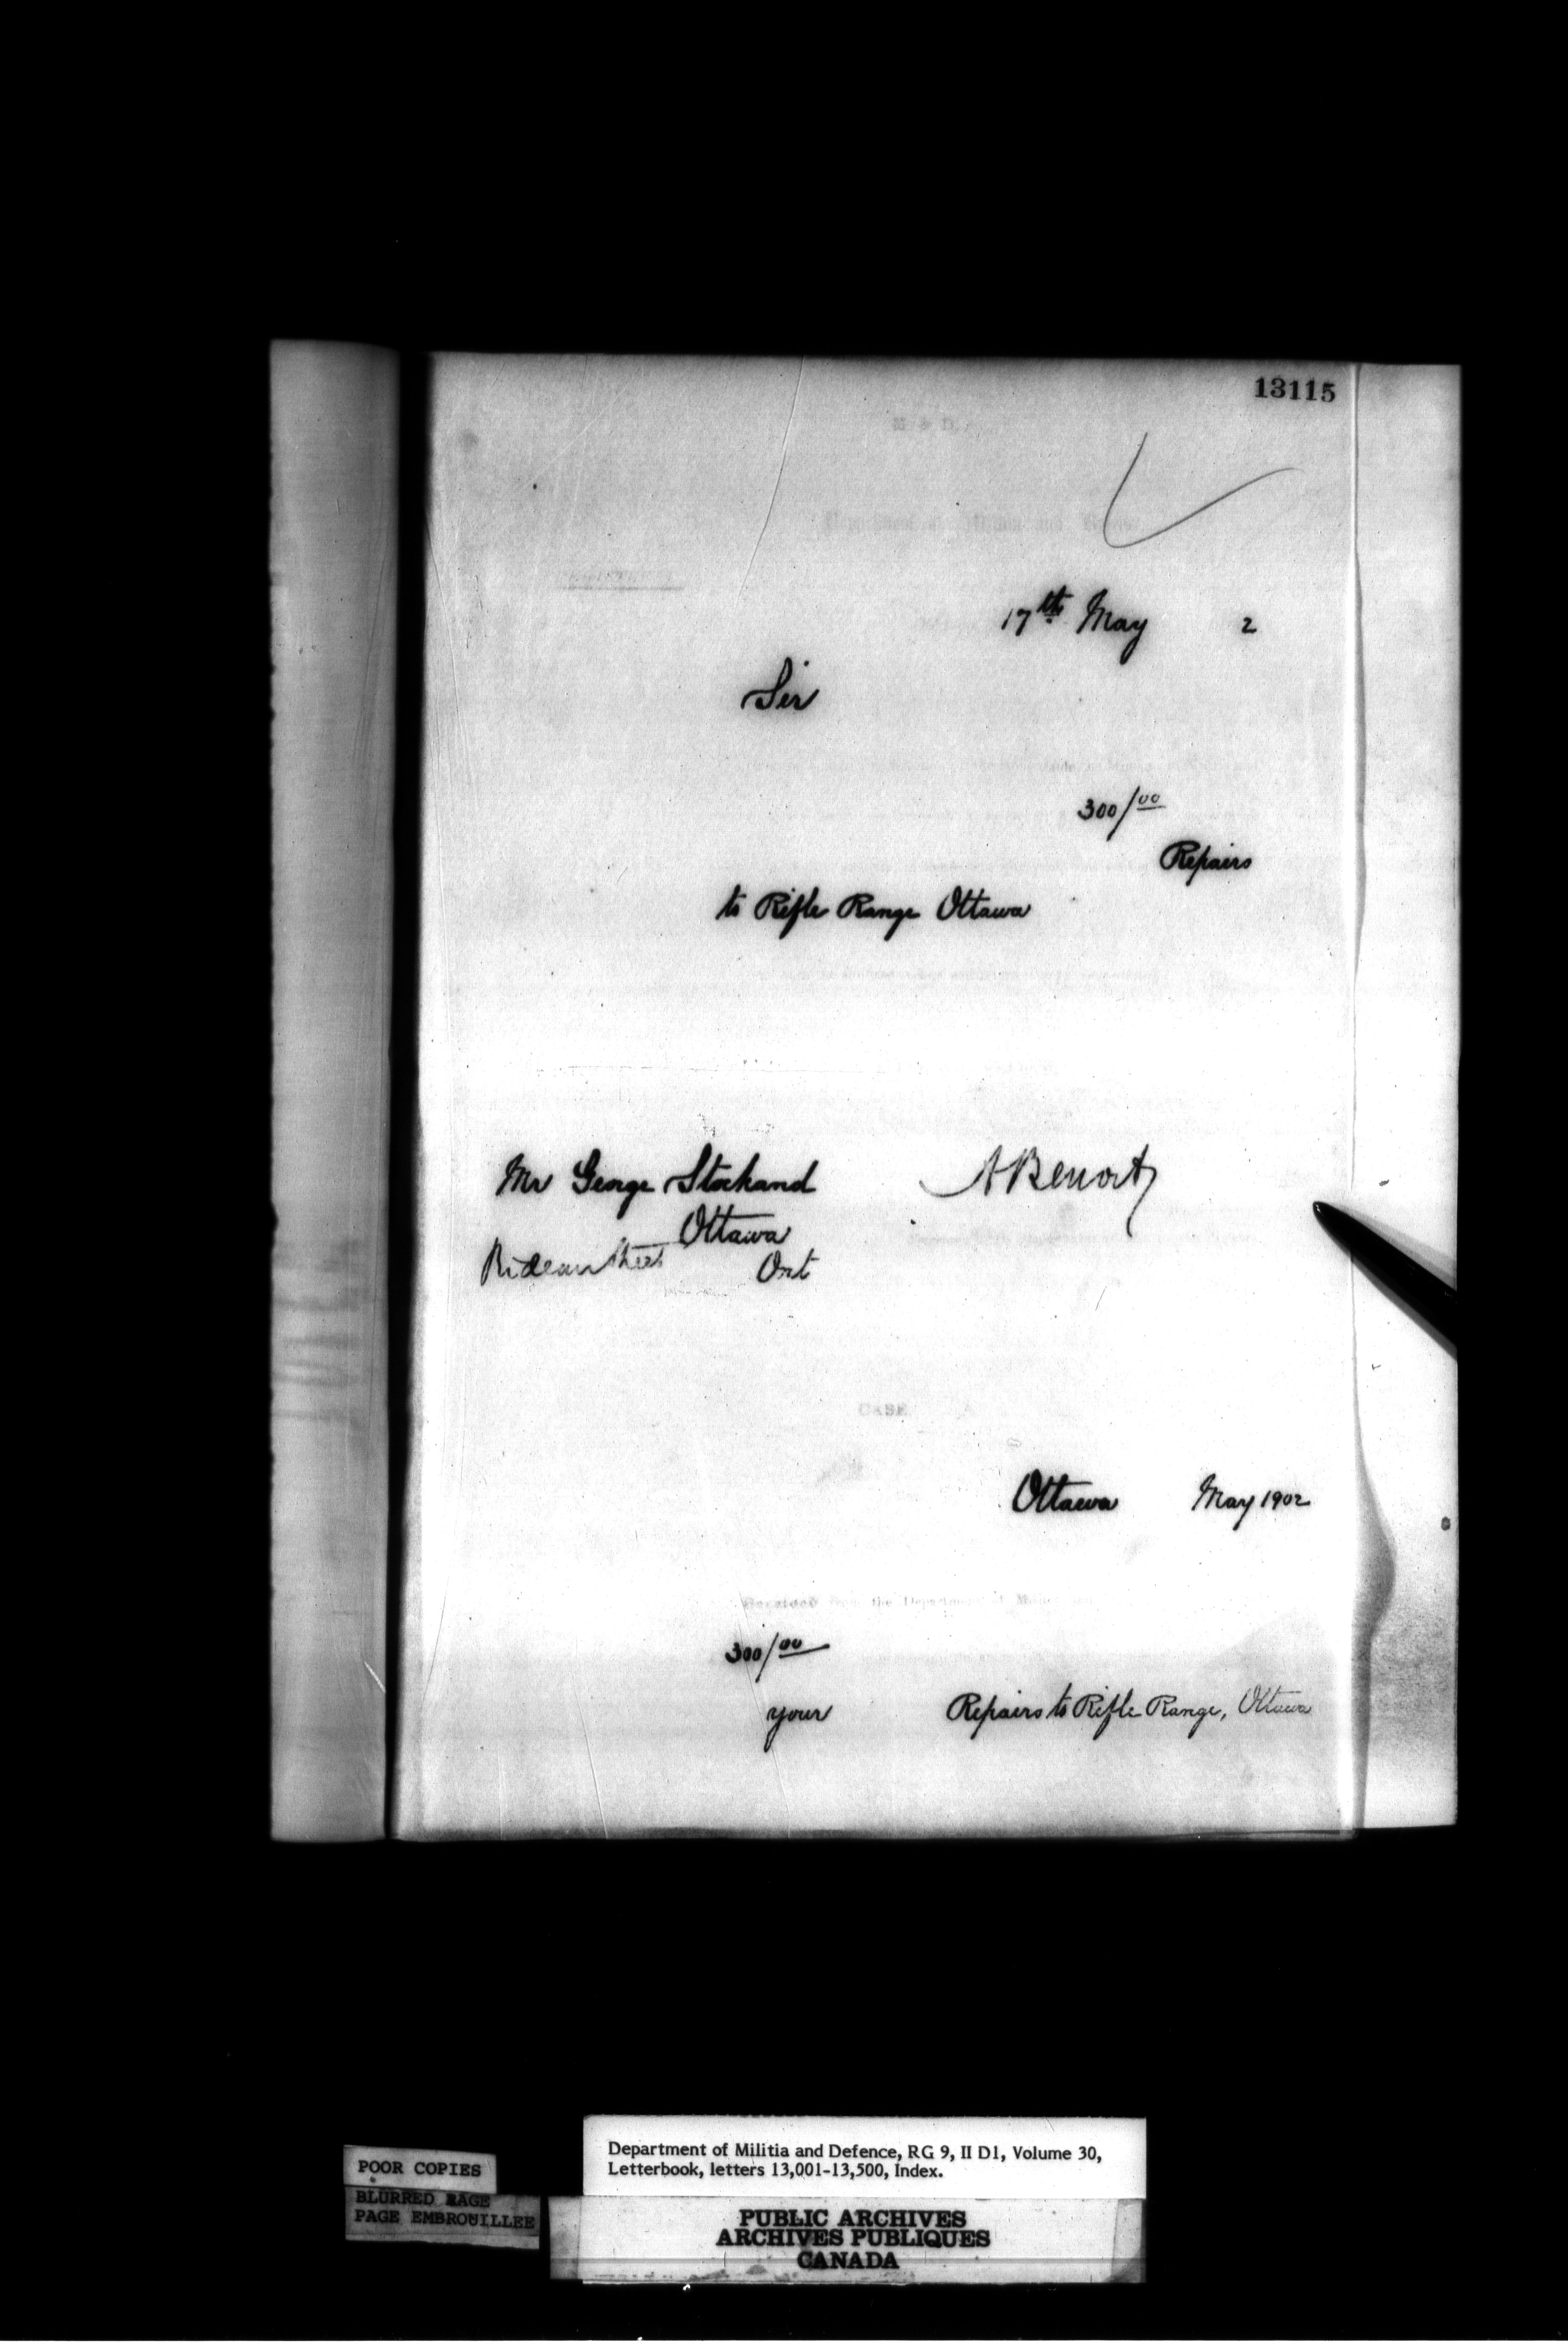 13115
M & D.
17th May 2
Sir
300/00
Repairs
to Rifle Range Ottawa
Mr George Stockand
A Benoit
Ottawa
Rideau Street
Ont
CASE A
Ottawa May 1902
Received from the Department of
300/00
your Repairs to Rifle Range, Ottawa
POOR COPIES
BLURRED PAGE
PAGE EMBROUILLEE
Department of Militia and Defence, RG 9, II D1, Volume 30,
Letterbook, letters 13,001-13,500, Index.
PUBLIC ARCHIVES
ARCHIVES PUBLIQUES
CANADA